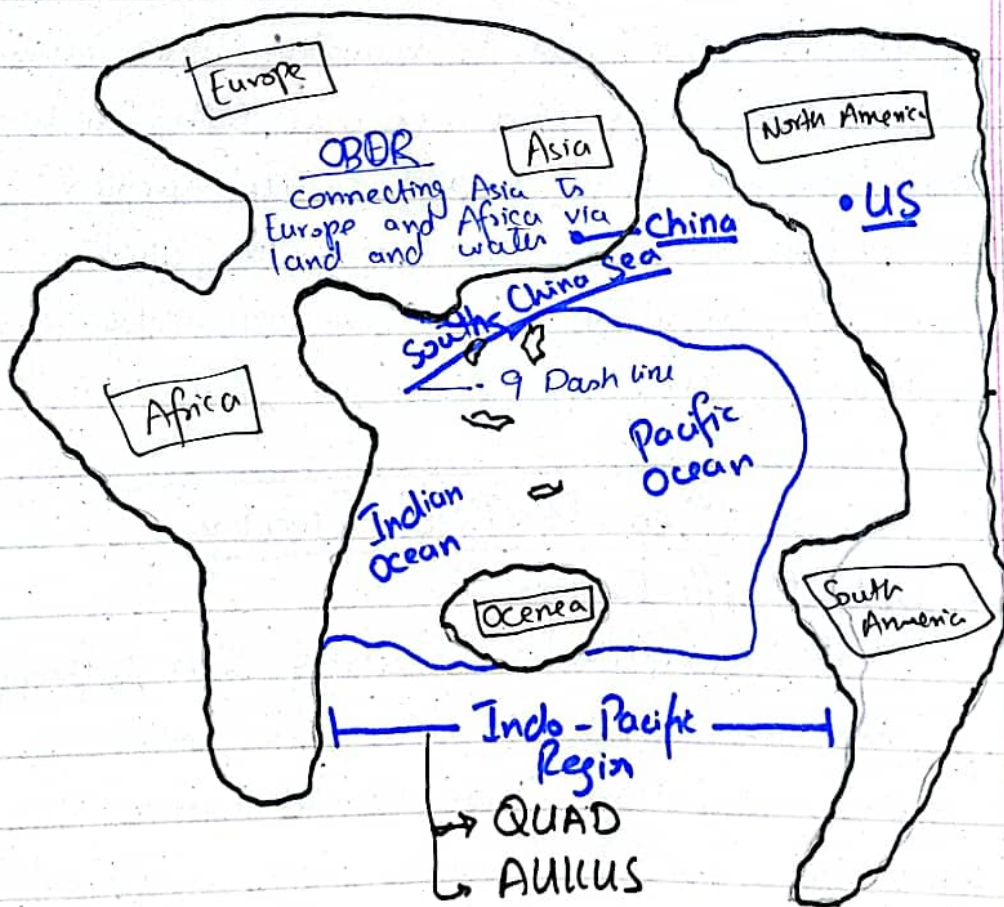 Europe
North America
OBOR
Asia
connecting Asia to
Europe and Africa via
land and water
China
US
South China Sea
9 Dash line
Africa
Pacific
Ocean
Indian
Ocean
Ocenea
South
America
Indo-Pacific
Region
QUAD
AUKUS